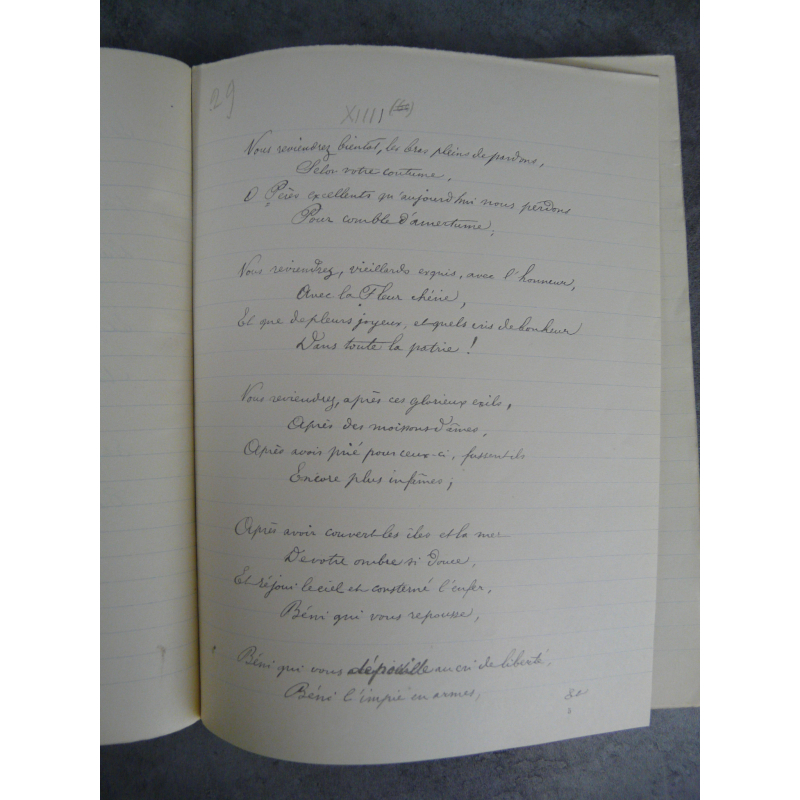 29
XIIII
Vous reviendrez bientôt, les bras pleins de pardons,
Selon votre coutume,
O Pères excellents qu'aujourd'hui nous perdons
Pour comble d'amertume,
Vous reviendrez, vieillards exquis, avec l'honneur,
Avec la Fleur chérie,
Et que de pleurs joyeux, et quels cris de bonheur
Dans toute la patrie !
Vous reviendrez, après ces glorieux exils,
Après des moissons d'âmes,
Après avoir prié pour ceux-ci, fussent-ils
Encore plus infâmes ;
Après avoir couvert les îles et la mer
De votre ombre si douce,
Et réjoui le ciel et consterné l'enfer,
Béni qui vous repousse,
Béni qui vous dépouille au cri de liberté,
Béni l'impie en armes,